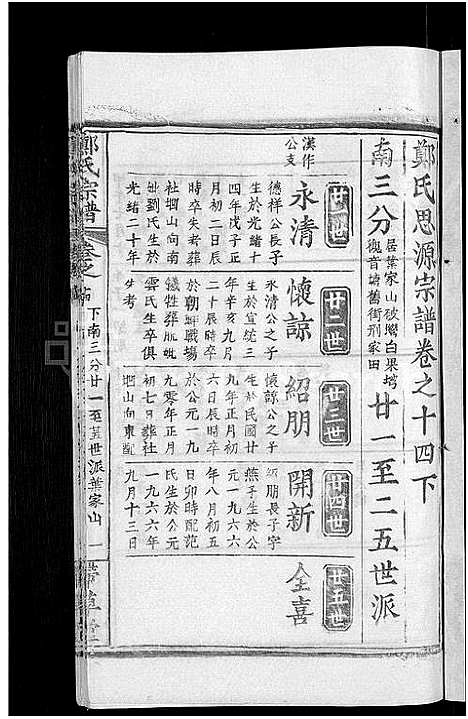 鄭氏思源宗譜卷之十四下
南三分
居葉家山破塆白果塆
觀音塘舊街刑家田
廿一至二五世派
廿一世
永清
漢作
公支
德祥公長子
生於光緒十
四年戊子正
月初二日辰
時卒失考葬
社堋山向南
妣劉氏生於
光緒二十年
廿二世
懷諒
永清公之子
生於宣統三
年辛亥九月
二十辰時卒
於朝鮮戰場
犧牲葬
雲氏生卒俱
失考
廿三世
紹朋
懷諒公之子
生於民國廿
九年正月初
六日辰時卒
於公元一九
九零年正月
初七日葬社
堋山向東配
廿四世
開新
紹朋長子字
燕子生於公
元一九六六
年八月初五
日卯時配范
氏生於公元
一九六六年
九月十三日
廿五世
全喜
鄭氏宗譜
卷之十四
下南三分廿一至五世派葉家山
一